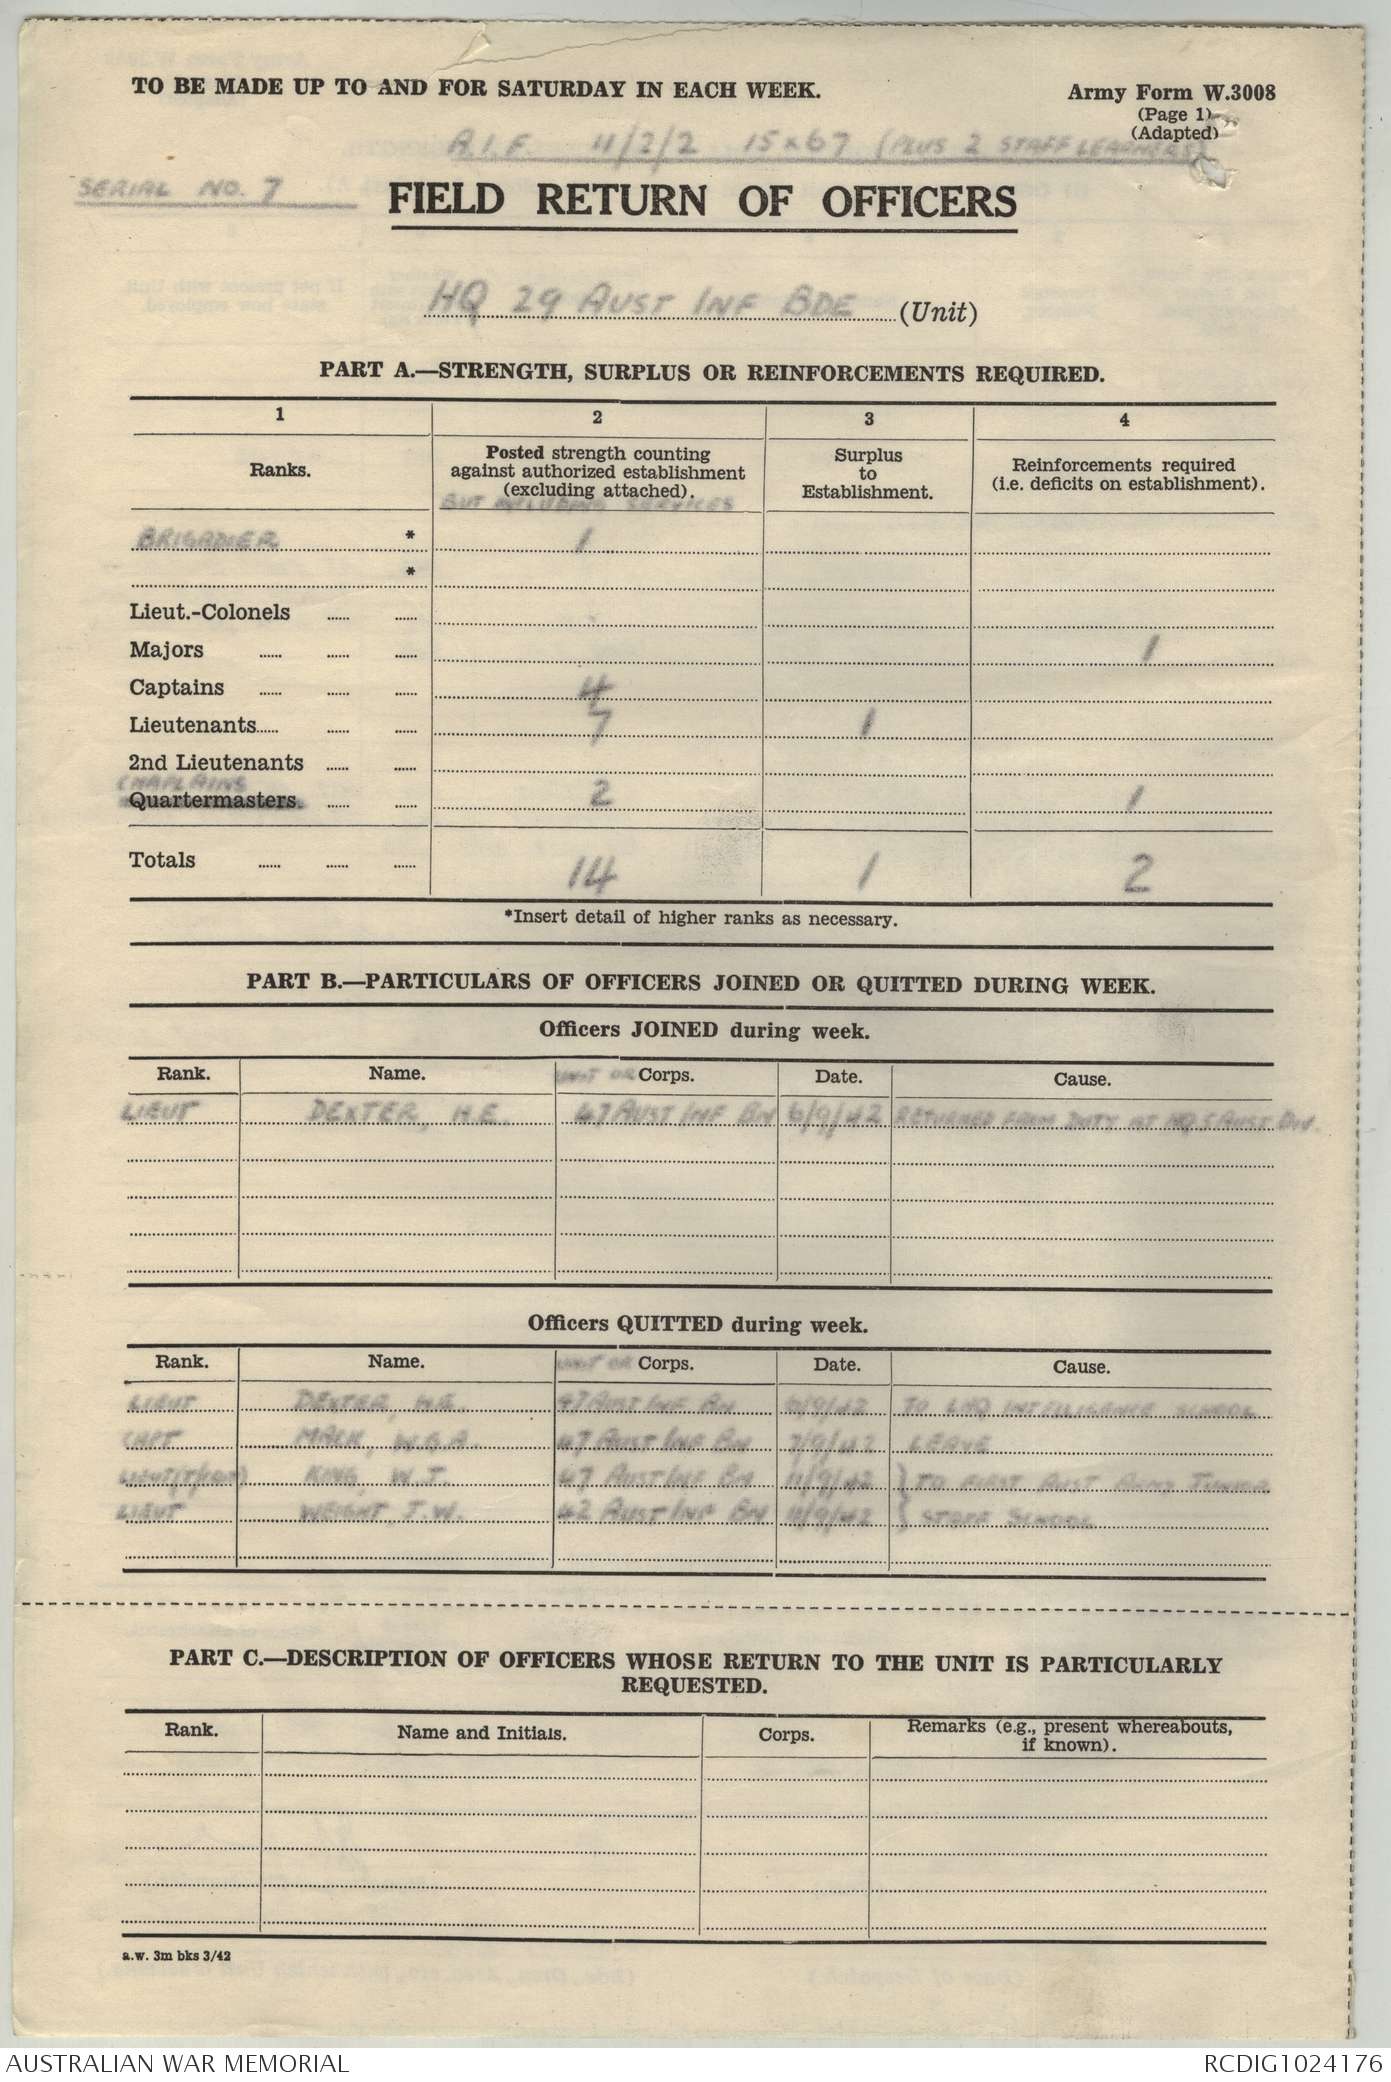 TO BE MADE UP TO AND FOR SATURDAY IN EACH WEEK.
Army Form W.3008
(Page 1)
(Adapted)
A.I.F. 11/2/2 15 x 67 (PLUS 2 STAFF LEARNERS)
SERIAL NO. 7
FIELD RETURN OF OFFICERS
HQ 29 AUST INF BDE (Unit)
PART A.—STRENGTH, SURPLUS OR REINFORCEMENTS REQUIRED.
1 2 3 4
Ranks. Posted strength counting against authorized establishment (excluding attached). BUT INCLUDING SERVICES Surplus to Establishment. Reinforcements required (i.e. deficits on establishment).
BRIGADIER * 1
*
Lieut.-Colonels
Majors 1
Captains 4
Lieutenants 7 1
2nd Lieutenants
CHAPLAINS
Quartermasters 2 1
Totals 14 1 2
*Insert detail of higher ranks as necessary.
PART B.—PARTICULARS OF OFFICERS JOINED OR QUITTED DURING WEEK.
Officers JOINED during week.
Rank. Name. UNIT OR Corps. Date. Cause.
LIEUT DEXTER, H.E. 47 AUST INF BN 6/9/42 RETURNED FROM DUTY AT HQ 5 AUST DIV.
Officers QUITTED during week.
Rank. Name. UNIT OR Corps. Date. Cause.
LIEUT DEXTER, H.E. 47 AUST INF BN 6/9/42 TO LHQ INTELLIGENCE SCHOOL
CAPT MACK, W.G.A. 47 AUST INF BN 7/9/42 LEAVE
LIEUT KING, W.J. 47 AUST INF BN 11/9/42 } TO FIRST AUST ARMY JUNIOR
LIEUT WEIGHT, J.W. 42 AUST INF BN 11/9/42 } STAFF SCHOOL
PART C.—DESCRIPTION OF OFFICERS WHOSE RETURN TO THE UNIT IS PARTICULARLY
REQUESTED.
Rank. Name and Initials. Corps. Remarks (e.g., present whereabouts, if known).
a.w. 3m bks 3/42
AUSTRALIAN WAR MEMORIAL
RCDIG1024176